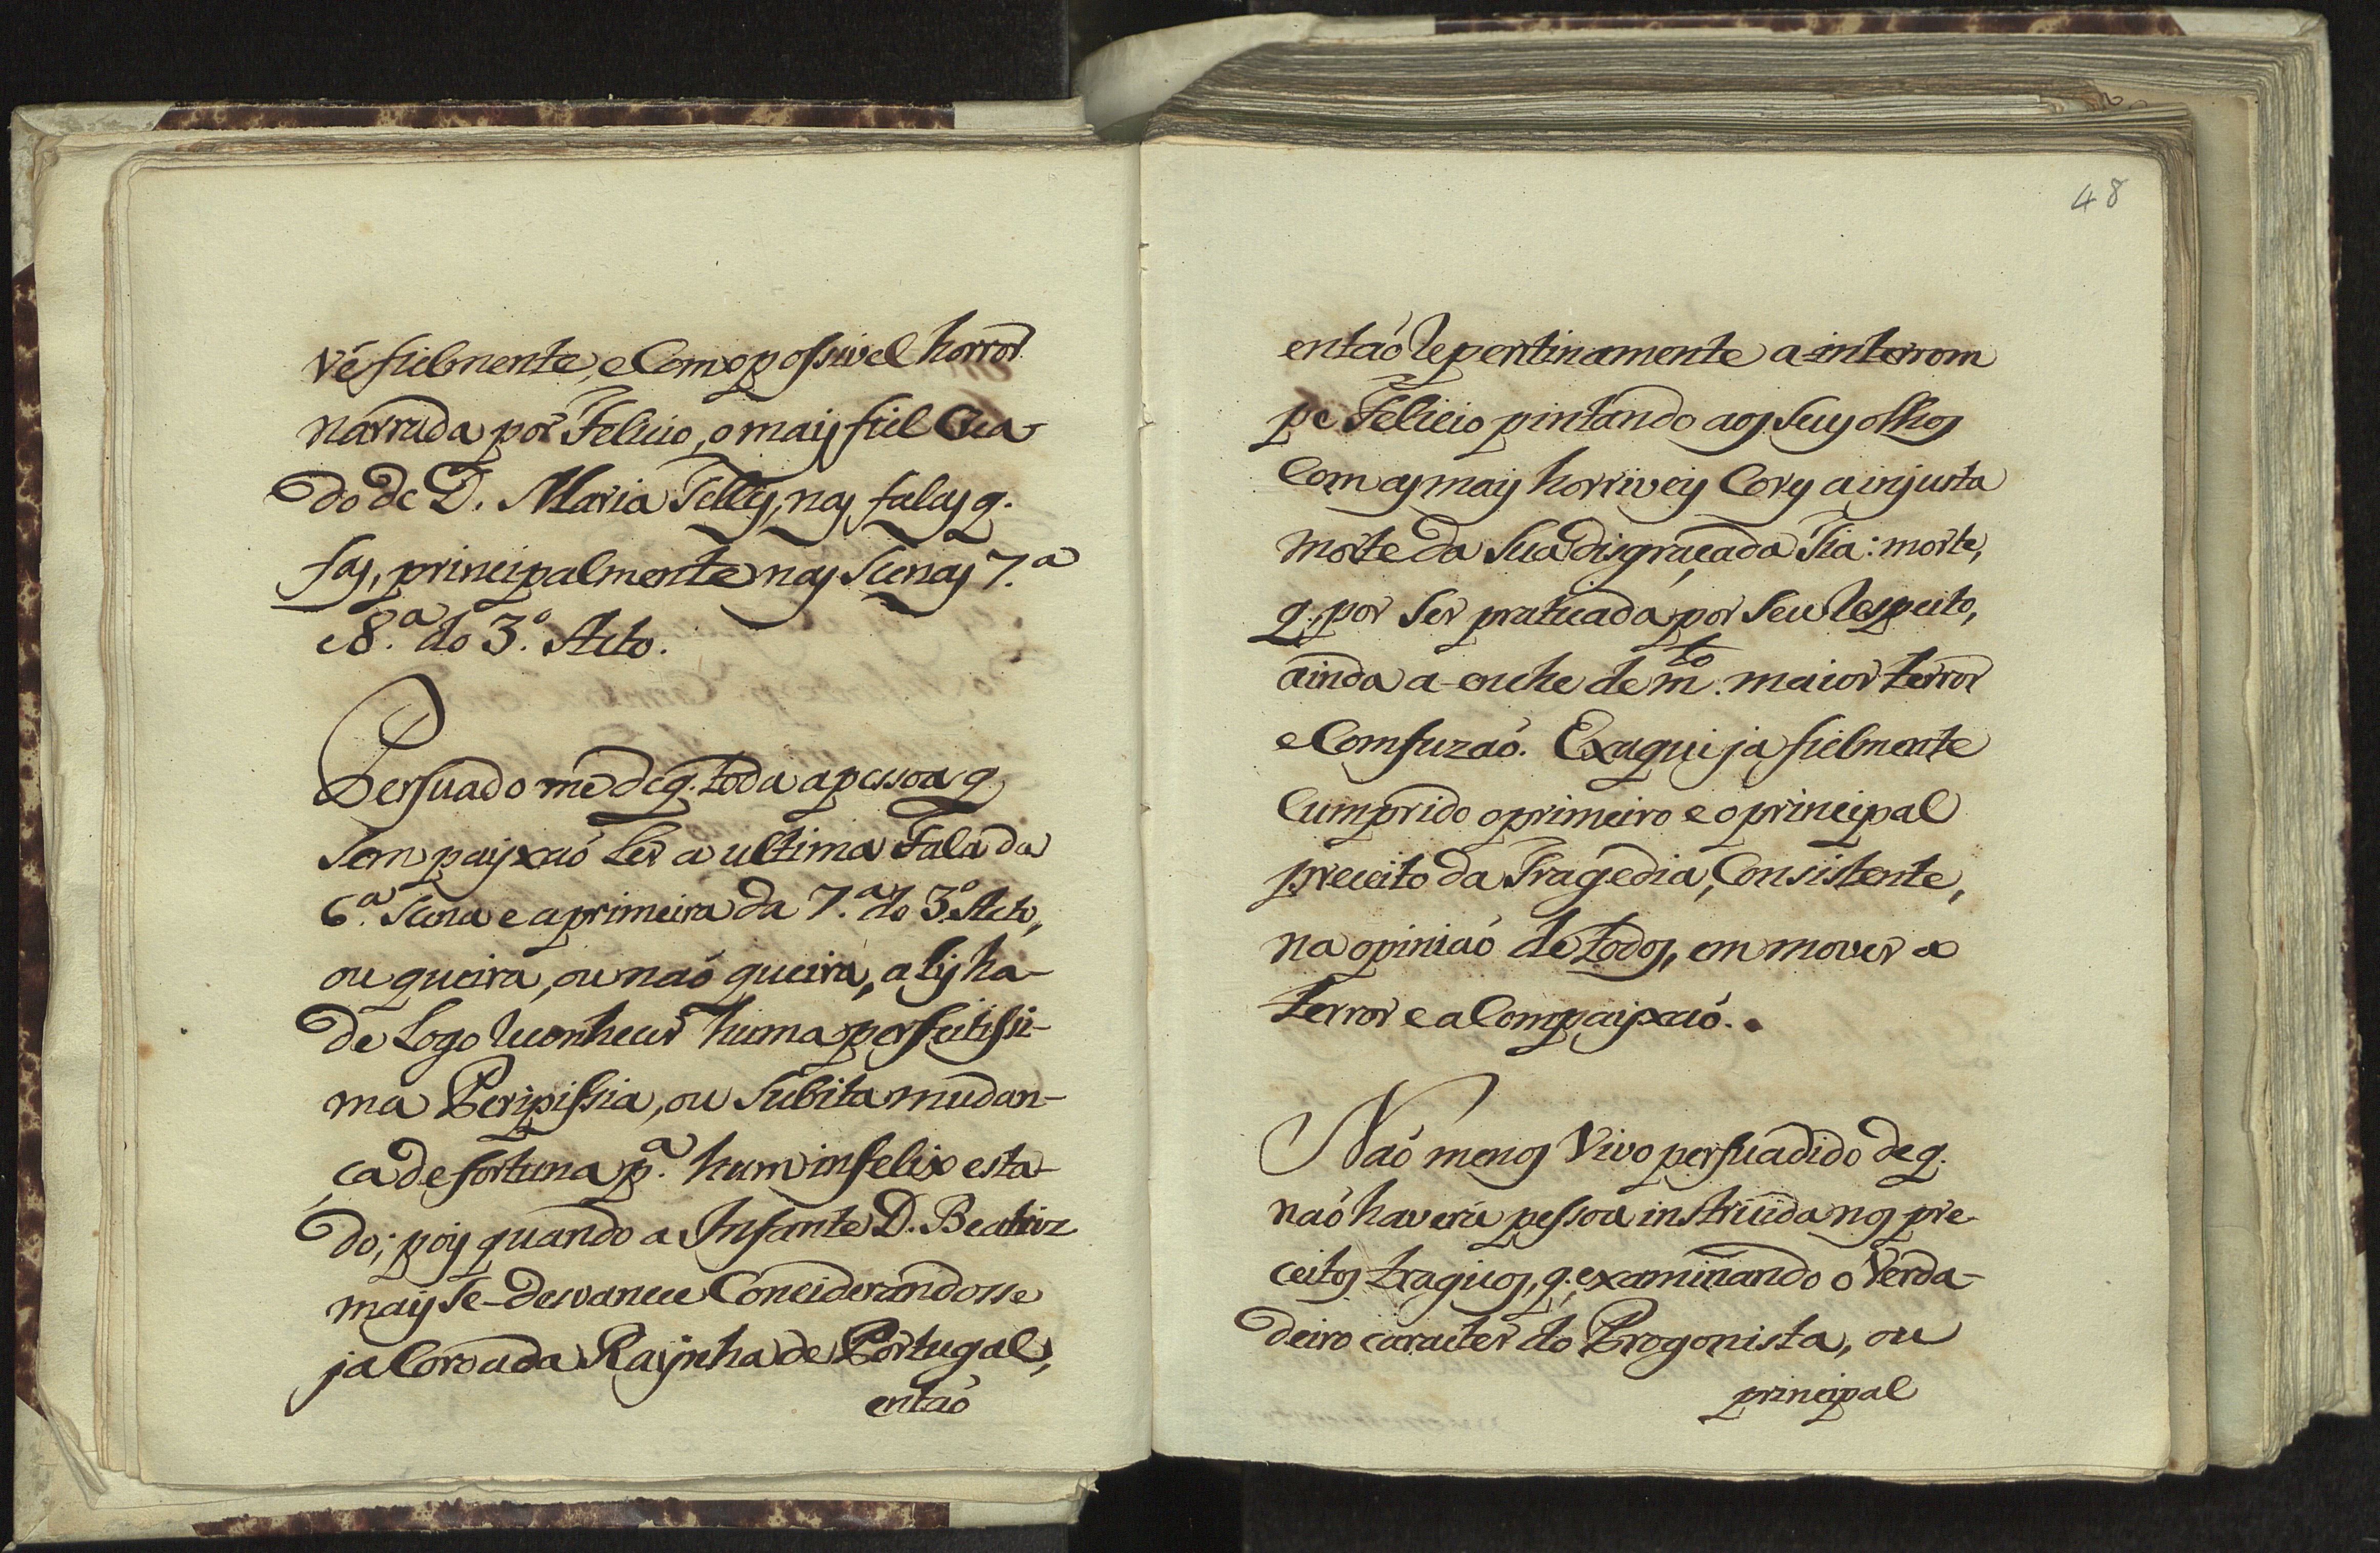 vê fielmente, e Com o possivel horror
narrada por Felicio, o mais fiel Cria-
do de D. Maria Telles, nas falas q.
fas, principalmente nas Scenas 7.ª
e 8.ª do 3.º Acto.
Persuado me de q. toda a pessoa q.
sem payxaõ Ler a ultima Fala da
6.ª Scena e a primeira da 7.ª do 3.º Acto,
ou queira, ou naõ queira, alij ha-
de Logo reconhecer huma perfeitissi-
ma Peripissia, ou Subita mudan-
ça de fortuna p.ª hum infelix esta-
do; pois quando a Infante D. Beatriz
mais Se-desvanece Conciderandosse
ja Coroada Raynha de Portugal,
entaõ
48
entaõ repentinamente a-interrom
pe Felicio pintando aos Seus olhos
Com as mais horriveis Cores a injusta
morte da Sua disgraçada Tia: morte,
q. por Ser praticada por Seu respeito,
ainda a-enche de m.to maior terror
e Comfuzaõ. Exaqui ja fielmente
Cumprido o primeiro e o principal
preceito da Tragedia, Consistente,
na opiniaõ de todos, em mover o
terror e a Compayxaõ.
Naõ menos Vivo persuadido de q.
naõ haverá pessoa instruida nos pre-
ceitos tragicos, q. examinando o Verda-
deiro caracter do Progonista, ou
principal